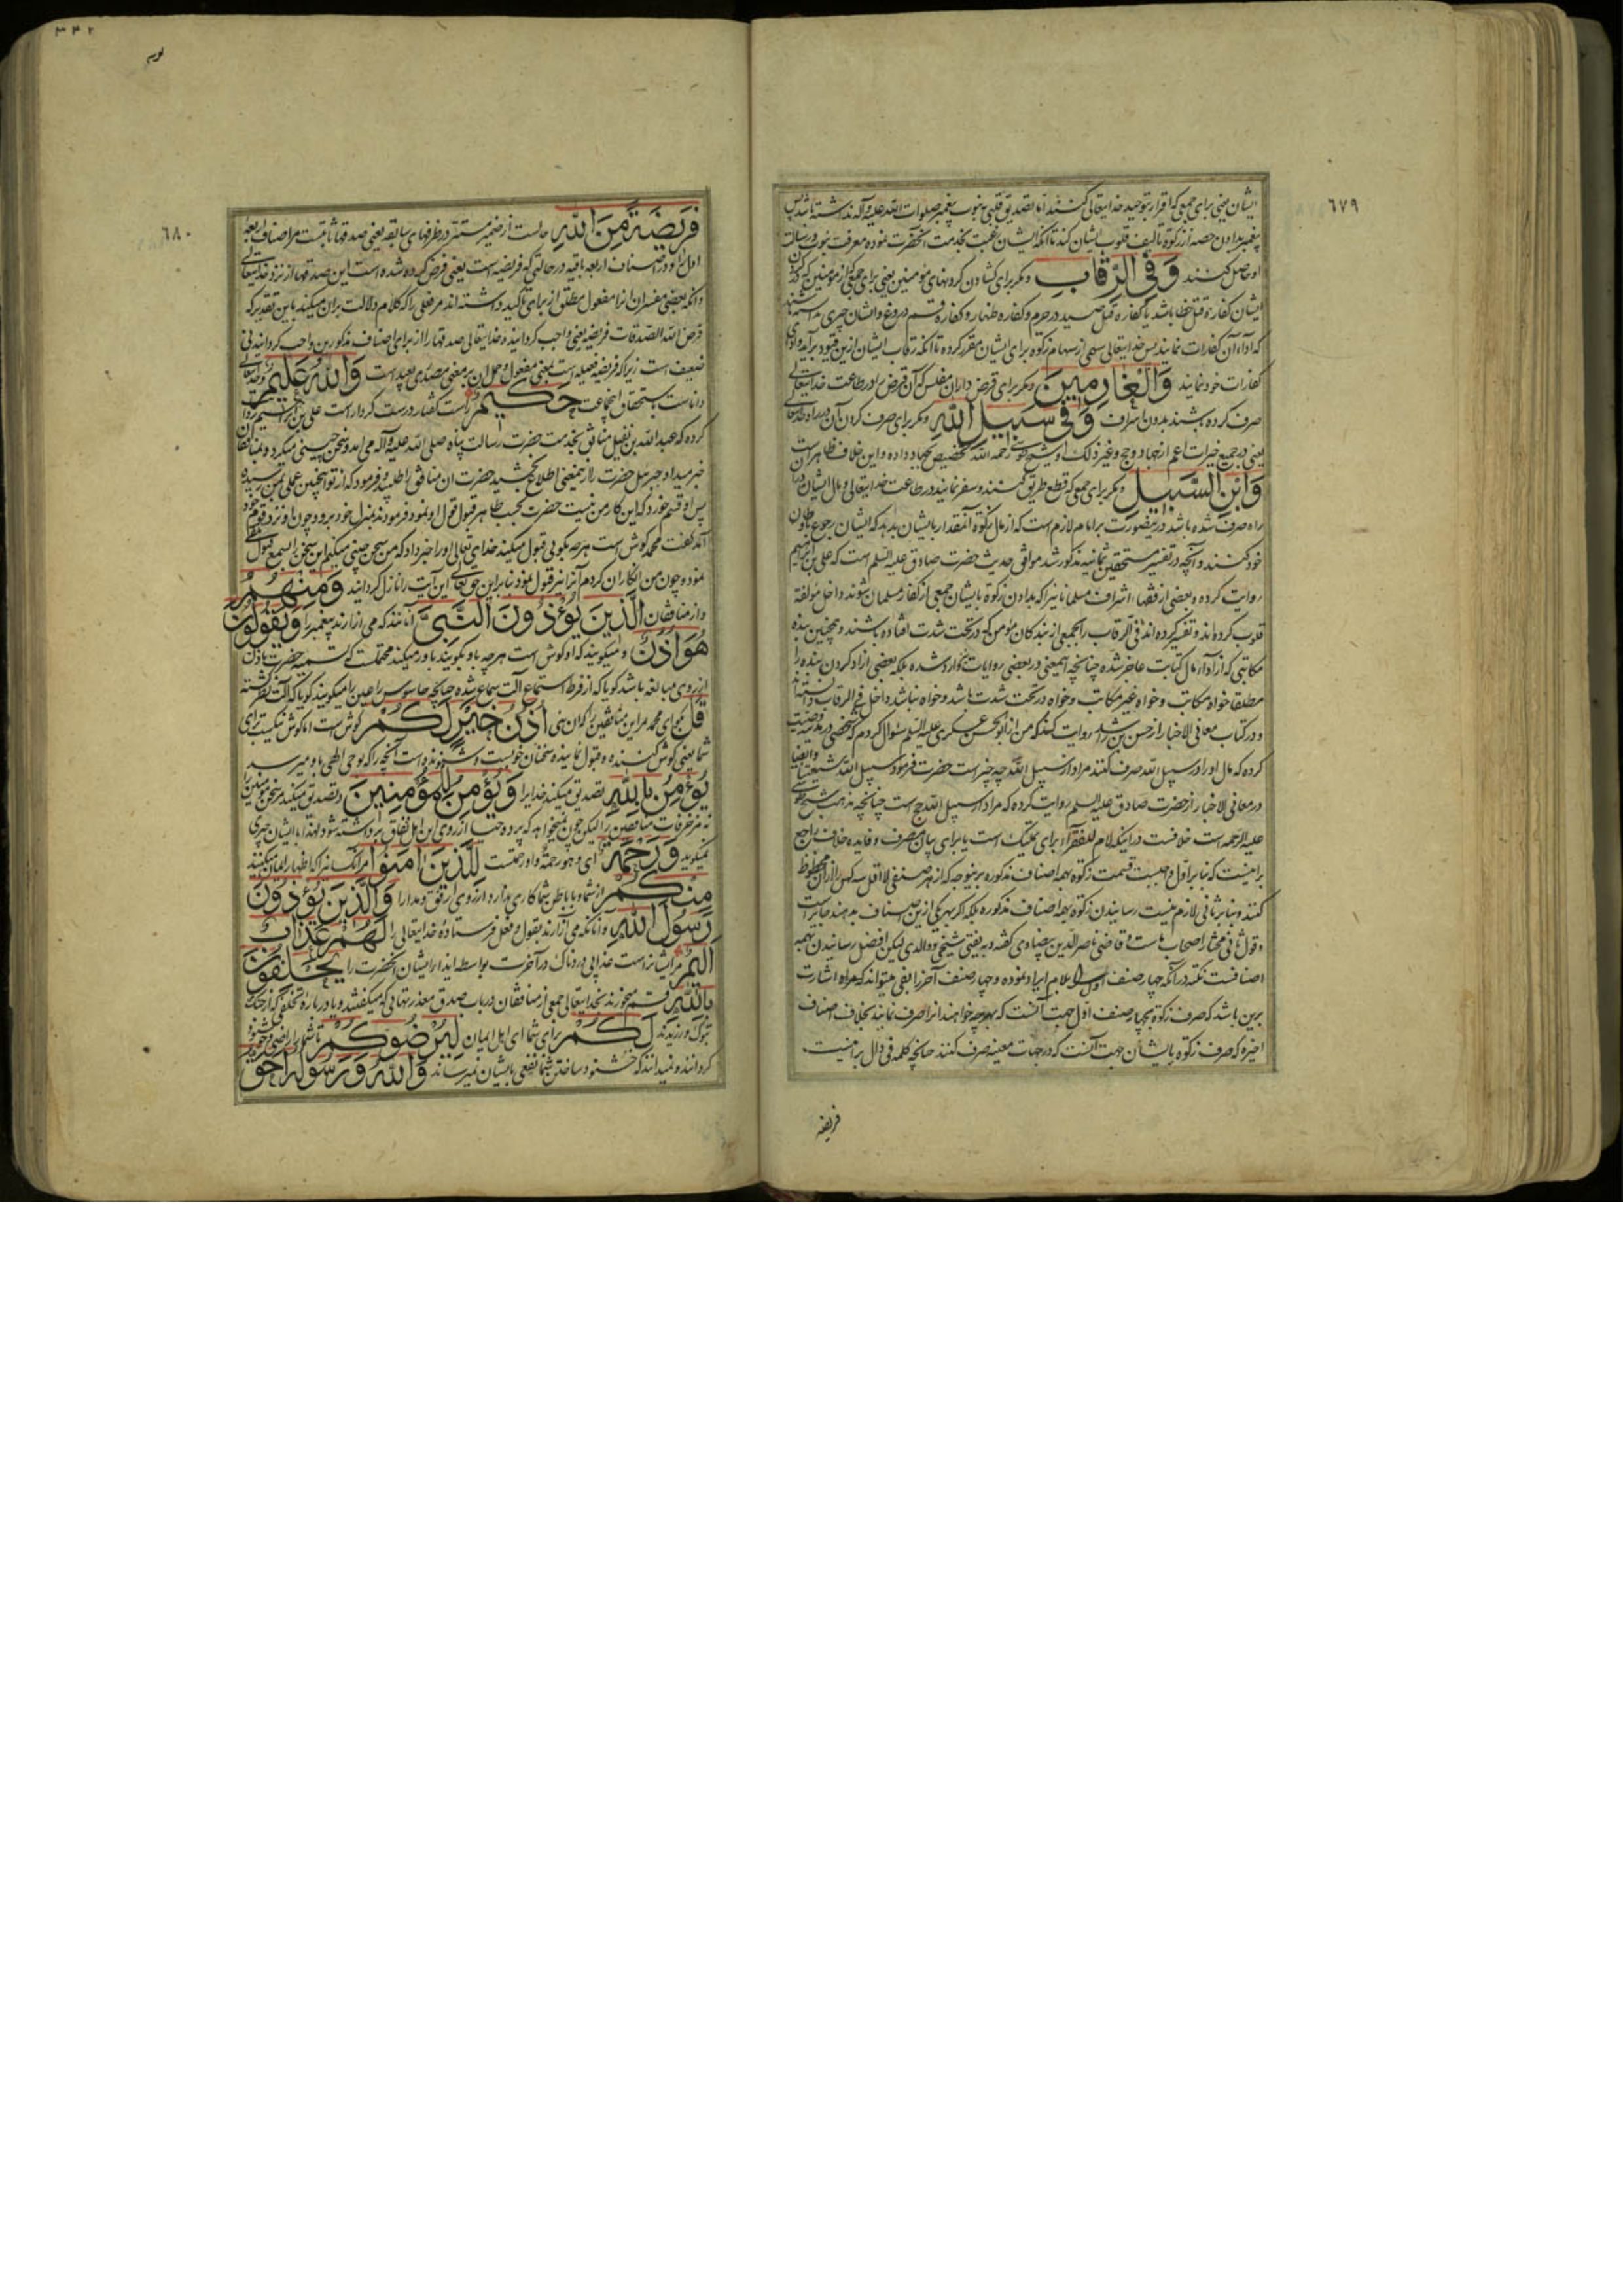 ٦٧٩
ایشان یعنی برای جمعی که اقرار بتوحید خدایتعالی کنند اما تصدیق قلبی به نبوت پیغمبر صلوات الله علیه و آله نداشته باشند پس
پیغمبر بدادن حصه از زکوة تالیف قلوب ایشان کند تا آنکه ایشان رغبت بخدمت آنحضرت نموده معرفت نبوت و رسالت
او حاصل کنند وَفِي الرِّقَابِ و دیگر برای کشادن گردنهای مؤمنین یعنی برای جمعی از مؤمنین که در گردن
ایشان کفارهٔ قتل خطا باشد یا کفارهٔ قتل صید در حرم و کفاره ظهار و کفارهٔ قسم دروغ و ایشان چیزی نداشته باشند
که اداء آن کفارات نمایند پس خدایتعالی سهمی از سهام زکوة برای ایشان مقرر کرده تا آنکه رقاب ایشان ازین قیود برآید و ادای
کفارات خود نمایند وَالْغَارِمِينَ و دیگر برای قرض داران مفلس که آن قرض را در طاعت خدایتعالی
صرف کرده باشند بدون اسراف وَفِي سَبِيلِ اللَّهِ و دیگر برای صرف کردن آن در راه خدایتعالی
یعنی در جمیع خیرات اعم از جهاد و حج و غیر ذلک و شیخ طوسی رحمه الله تخصیص بجهاد داده و این خلاف ظاهر است
وَابْنِ السَّبِيلِ و دیگر برای جمعی که قطع طریق کنند و سفر نمایند در طاعت خدایتعالی و مال ایشان در
راه صرف شده باشد درینصورت بر امام لازم است که از مال زکوة آنمقدار بایشان بدهد که ایشان رجوع باوطان
خود کنند و آنچه در تفسیر مستحقین ثمانیه مذکور شد موافق حدیث حضرت صادق علیه السلم است که علی بن ابراهیم
روایت کرده و بعضی از فقها، اشراف مسلمانانرا که بدادن زکوة بایشان جمعی از کفار مسلمان شوند داخل مؤلفة
قلوب کرده‌اند و تفسیر کرده‌اند فی الرقاب را بجمعی از بندگان مؤمن که در تحت شدت افتاده باشند و همچنین بنده
مکاتبی که از اداء مال کتابت عاجز شده چنانچه اینمعنی در بعضی روایات وارد شده بلکه بعضی آزاد کردن بنده را
مطلقا خواه مکاتب و خواه غیر مکاتب و خواه در تحت شدت باشد و خواه نباشد داخل فی الرقاب دانسته‌اند
و در کتاب معانی الاخبار از حسن بن راشد روایت کند که من از ابو الحسن عسکری علیه السلم سؤال کردم که شخصی در مدینه وصیت
کرده که مال او را در سبیل الله صرف کنند مراد از سبیل الله چه چیز است حضرت فرمود سبیل الله شیعتنا و ایضا
در معانی الاخبار از حضرت صادق علیه السلم روایت کرده که مراد از سبیل الله حج است چنانچه مذهب شیخ طوسی
علیه الرحمه است خلافست در اینکه لام للفقرآء برای تملیک است یا برای بیان مصرف و فایده خلاف راجع
بر اینست که بنا بر اول واجبست قسمت زکوة بهمه اصناف مذکوره برینوجه که از هر صنفی لا اقل سه کس را از آن محظوظ
کنند و بنا بر ثانی لازم نیست رسانیدن زکوة بهمه اصناف مذکوره بلکه اگر بهر یکی ازین اصناف بدهند جایز است
و قول ثانی مختار اصحاب ماست و قاضی ناصر الدین بیضاوی گفته و به یفتی شیخی و والدی لیکن افضل رسانیدن بهمه
اصنافست نکته در آنکه چهار صنف اول را بلام ایراد نموده و چهار صنف آخر را بفی میتواند که مراد اشارت
برین باشد که صرف زکوة بچهار صنف اول جهت آنست که بهرچه خواهند آنرا صرف نمایند بخلاف اصناف
اخیره که صرف زکوة بایشان جهت آنست که در جهات معینه صرف کنند چنانچه کلمه فی دال بر اینست.
فریضة
٣٤٢
٦٨٠
فَرِيضَةً مِّنَ اللَّهِ حالست از ضمیر مستتر در ظرفهای سابقه یعنی صدقها ثابتست مر اصناف اربعهٔ
اول را و در اصناف اربعه باقیه در حالتی که فریضه است یعنی فرض کرده شده است این صدقها از نزد خدایتعالی
و آنکه بعضی مفسران آنرا مفعول مطلق از برای تاکید داشته‌اند مر فعلی را که کلام دلالت بر آن میکند باین تقدیر که
فرض الله الصدقات فریضة یعنی واجب گردانیده خدایتعالی صدقها را از برای اصناف مذکورین واجب گردانیدنی
ضعیف است زیرا که فریضه فعیله است بمعنی مفعول و حمل آن بر معنی مصدری بعید است وَاللَّهُ عَلِيمٌ و خدایتعالی
داناست باستحقاق انجماعت حَكِيمٌ راست گفتار و درست کردار است علی بن ابراهیم روایت
کرده که عبد الله بن نفیل منافق بخدمت حضرت رسالت پناه صلی الله علیه و آله می آمد و سخن چینی میکرد و بمنافقان
خبر میداد و جبرئیل حضرت را ازینمعنی اطلاع بخشید حضرت آن منافق را طلبید و فرمود که از تو اینچنین عملی بمن رسیده
پس او قسم خورد که این کار من نیست حضرت بحسب ظاهر قبول قول او نمود و فرمودند بمنزل خود برو و چون او نزد قوم خود
آمد گفت محمد گوش است هرچه بگویی قبول میکند خدای تعالی او را خبر داد که من سخن چینی میکنم این سخن را بسمع قبول
نموده چون من انکار آن کردم آنرا نیز قبول نمود بنابراین حق تعالی این آیت را نازل گردانید وَمِنْهُمُ
و از منافقان الَّذِينَ يُؤْذُونَ النَّبِيَّ آنانند که می آزارند پیغمبر را وَيَقُولُونَ
هُوَ أُذُنٌ و میگویند که او گوش است هرچه باو بگویند باور میکند محتملست که تسمیه حضرت باذن
از روی مبالغه باشد گویا که از فرط استماع آلت سماع شده چنانچه جاسوس را عین میگویند گویا که آلت نظر گشته
قُلْ بگو ای محمد مر این منافقین را که آن نبی أُذُنُ خَيْرٍ لَّكُمْ گوش است اما گوش نیکست برای
شما یعنی گوش کننده و قبول نماینده سخنان خوبست و شنونده است آنچه را که بوحی الهی باو میرسد
يُؤْمِنُ بِاللَّهِ تصدیق میکند خدایرا وَيُؤْمِنُ لِلْمُؤْمِنِينَ و تصدیق میکند مر سخن مؤمنین را
نه مزخرفات منافقین را لیکن چون نمیخواهد که پرده حیا از روی این اهل نفاق برداشته شود لهذا بایشان چیزی
نمیگوید وَرَحْمَةٌ ای و هو رحمة و او رحمتست لِّلَّذِينَ آمَنُوا مر آنکسانیرا که اظهار ایمان میکنند
مِنكُمْ از شما و با باطن شما کاری ندارد از روی رفق و مدارا وَالَّذِينَ يُؤْذُونَ
رَسُولَ اللَّهِ و آنانکه می آزارند بقول و فعل فرستادهٔ خدایتعالی را لَهُمْ عَذَابٌ
أَلِيمٌ مر ایشانراست عذابی دردناک در آخرت بواسطه ایذاء ایشان آنحضرت را يَحْلِفُونَ
بِاللَّهِ قسم میخورند بخدایتعالی جمعی از منافقان در باب صدق معذرتهائی که میگفتند و یا در بارهٔ تخلفی که از جنگ
تبوک ورزیدند لَكُمْ برای شما ای اهل ایمان لِيُرْضُوكُمْ تا شما را راضی و خشنود
گردانند و نمیدانند که خشنود ساختن شما نفعی بایشان نمیرساند وَاللَّهُ وَرَسُولُهُ أَحَقُّ